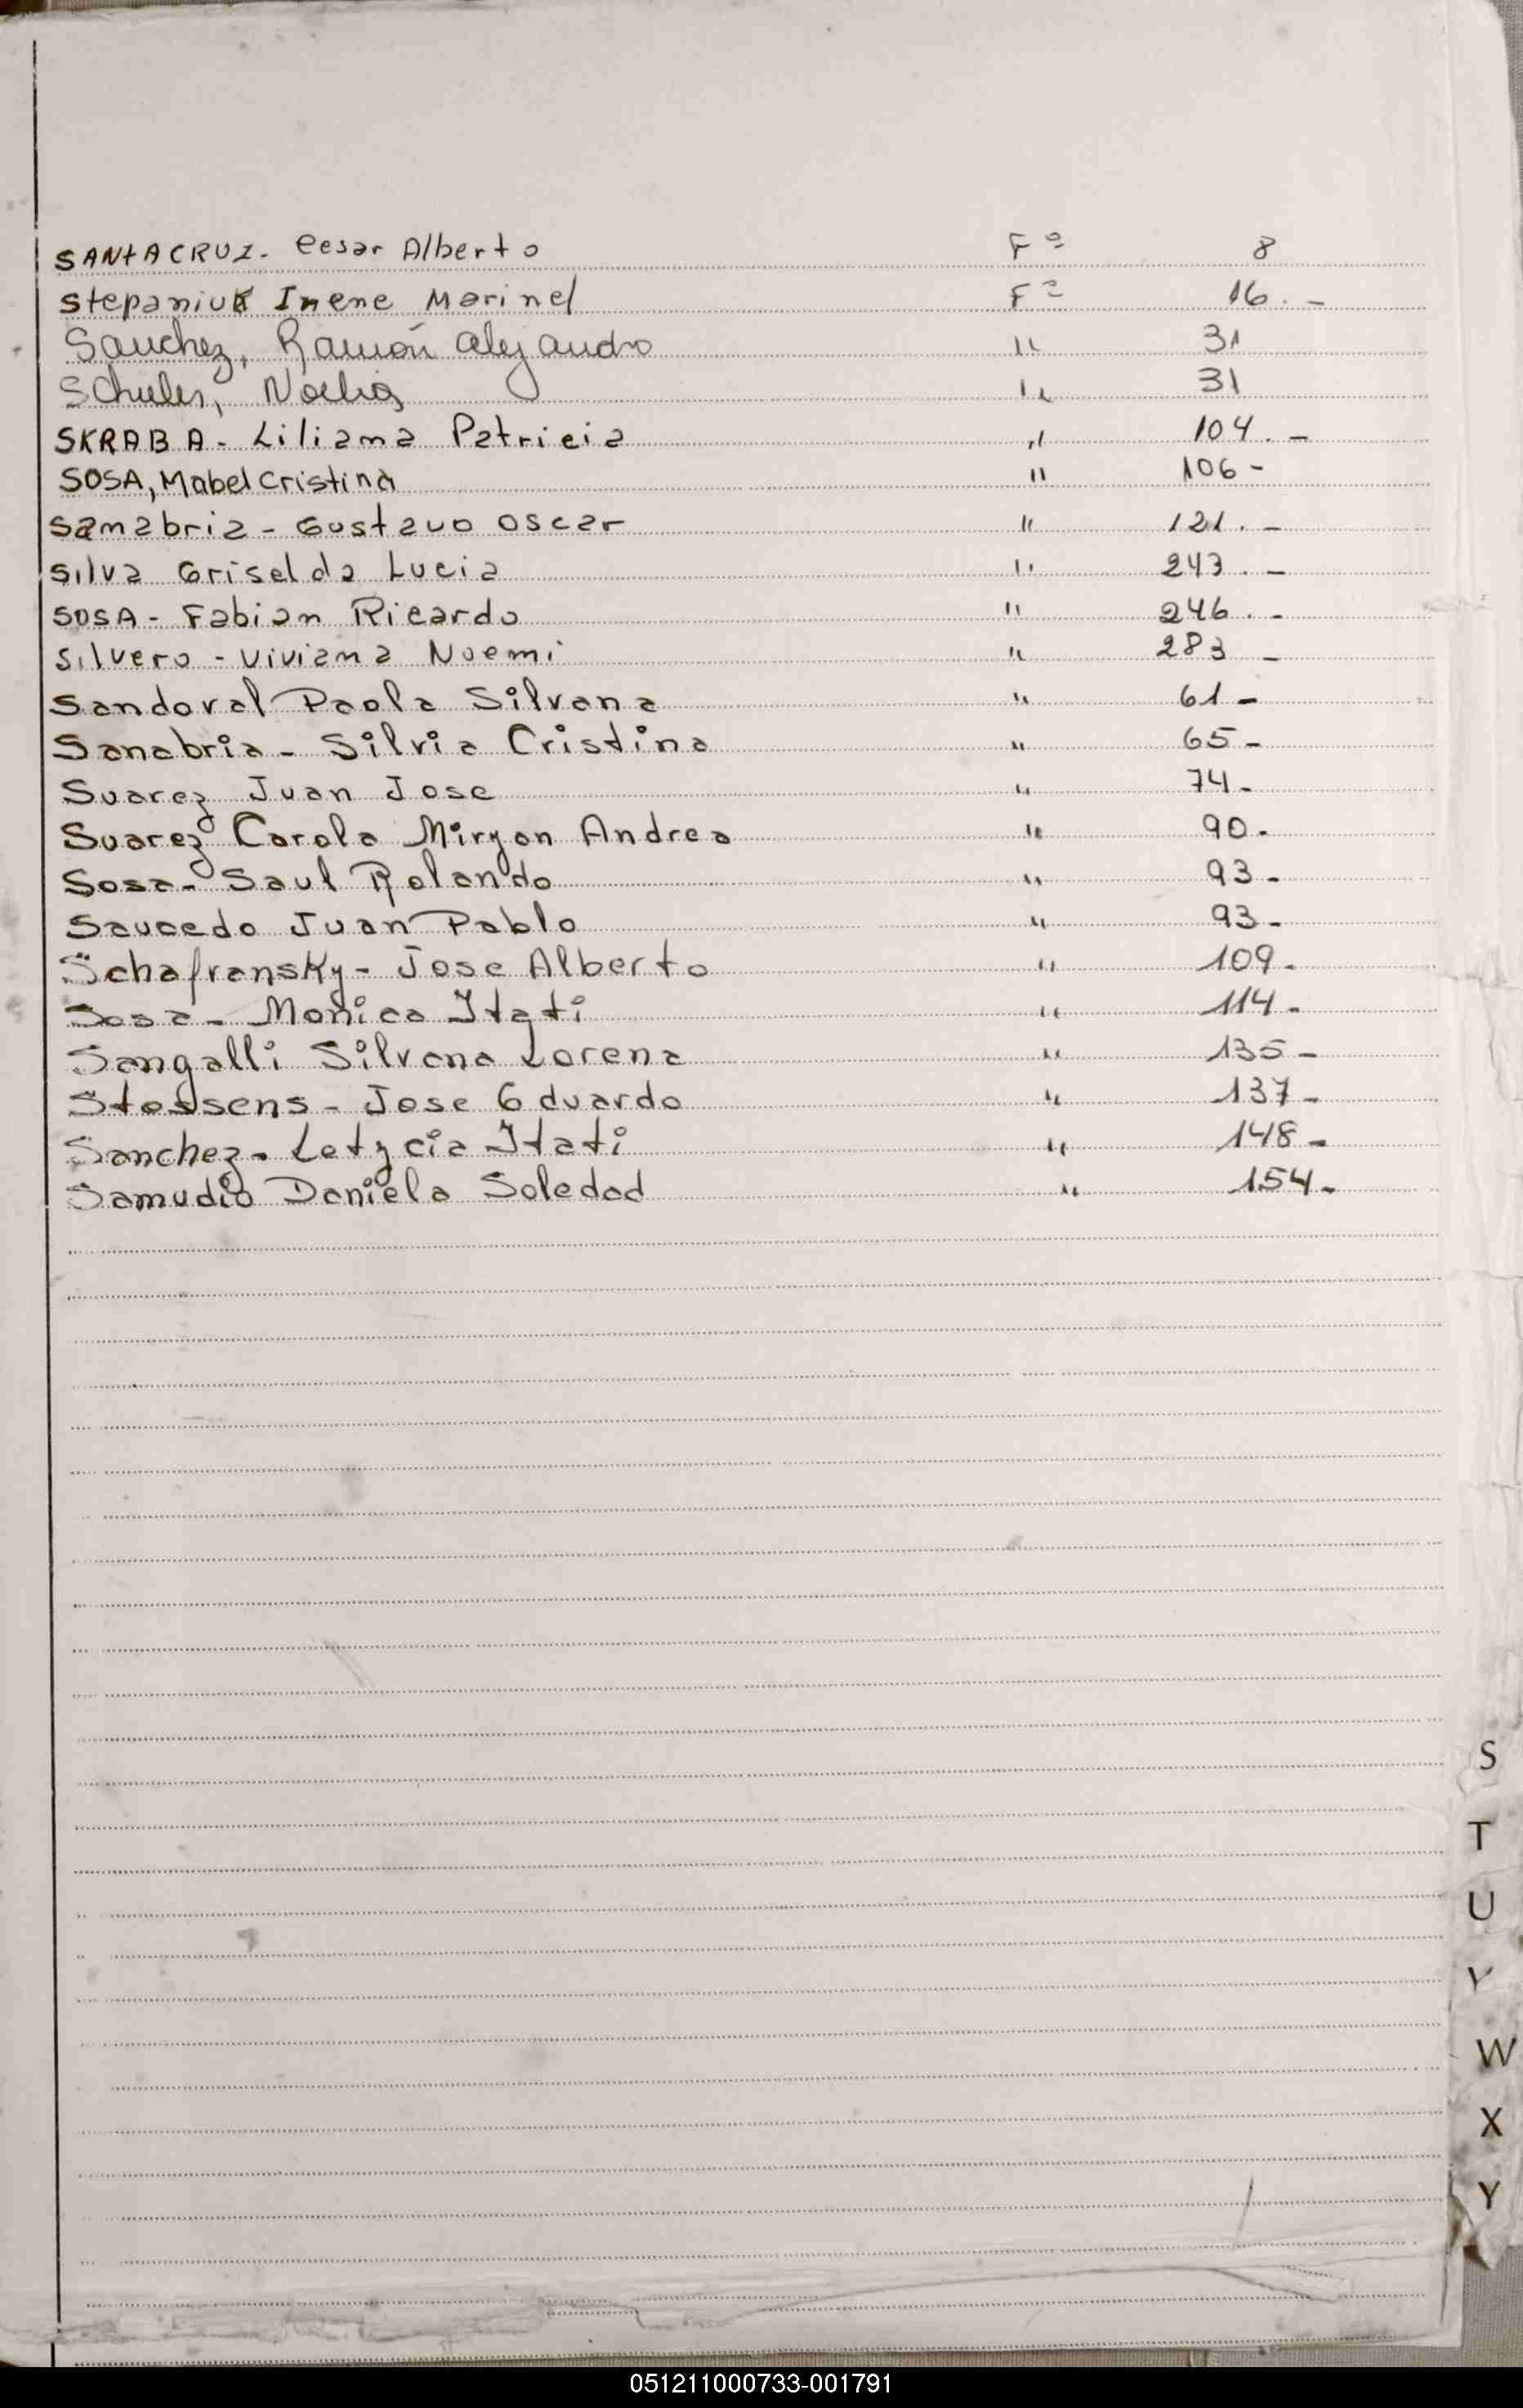 SANTACRUZ - Cesar Alberto Fº 8
Stepaniuk Irene Marinel Fº 16. -
Sanchez, Ramón Alejandro " 31
Schuler, Noelia " 31
SKRABA - Liliana Patricia " 104. -
SOSA, Mabel Cristina " 106 -
Sanabria - Gustavo Oscar " 121. -
Silva Griselda Lucia " 243. -
SOSA - Fabian Ricardo " 246. -
Silvero - Viviana Noemi " 283 -
Sandoval Paola Silvana " 61 -
Sanabria - Silvia Cristina " 65 -
Suarez Juan Jose " 74 -
Suarez Carola Miryan Andrea " 90 -
Sosa - Saul Rolando " 93 -
Saucedo Juan Pablo " 93 -
Schafransky - Jose Alberto " 109 -
Sosa - Monica Itati " 114 -
Sangalli Silvana Lorena " 135 -
Stossens - Jose Eduardo " 137 -
Sanchez - Letycia Itati " 148 -
Samudio Daniela Soledad " 154 -
S
T
U
V
W
X
Y
051211000733-001791